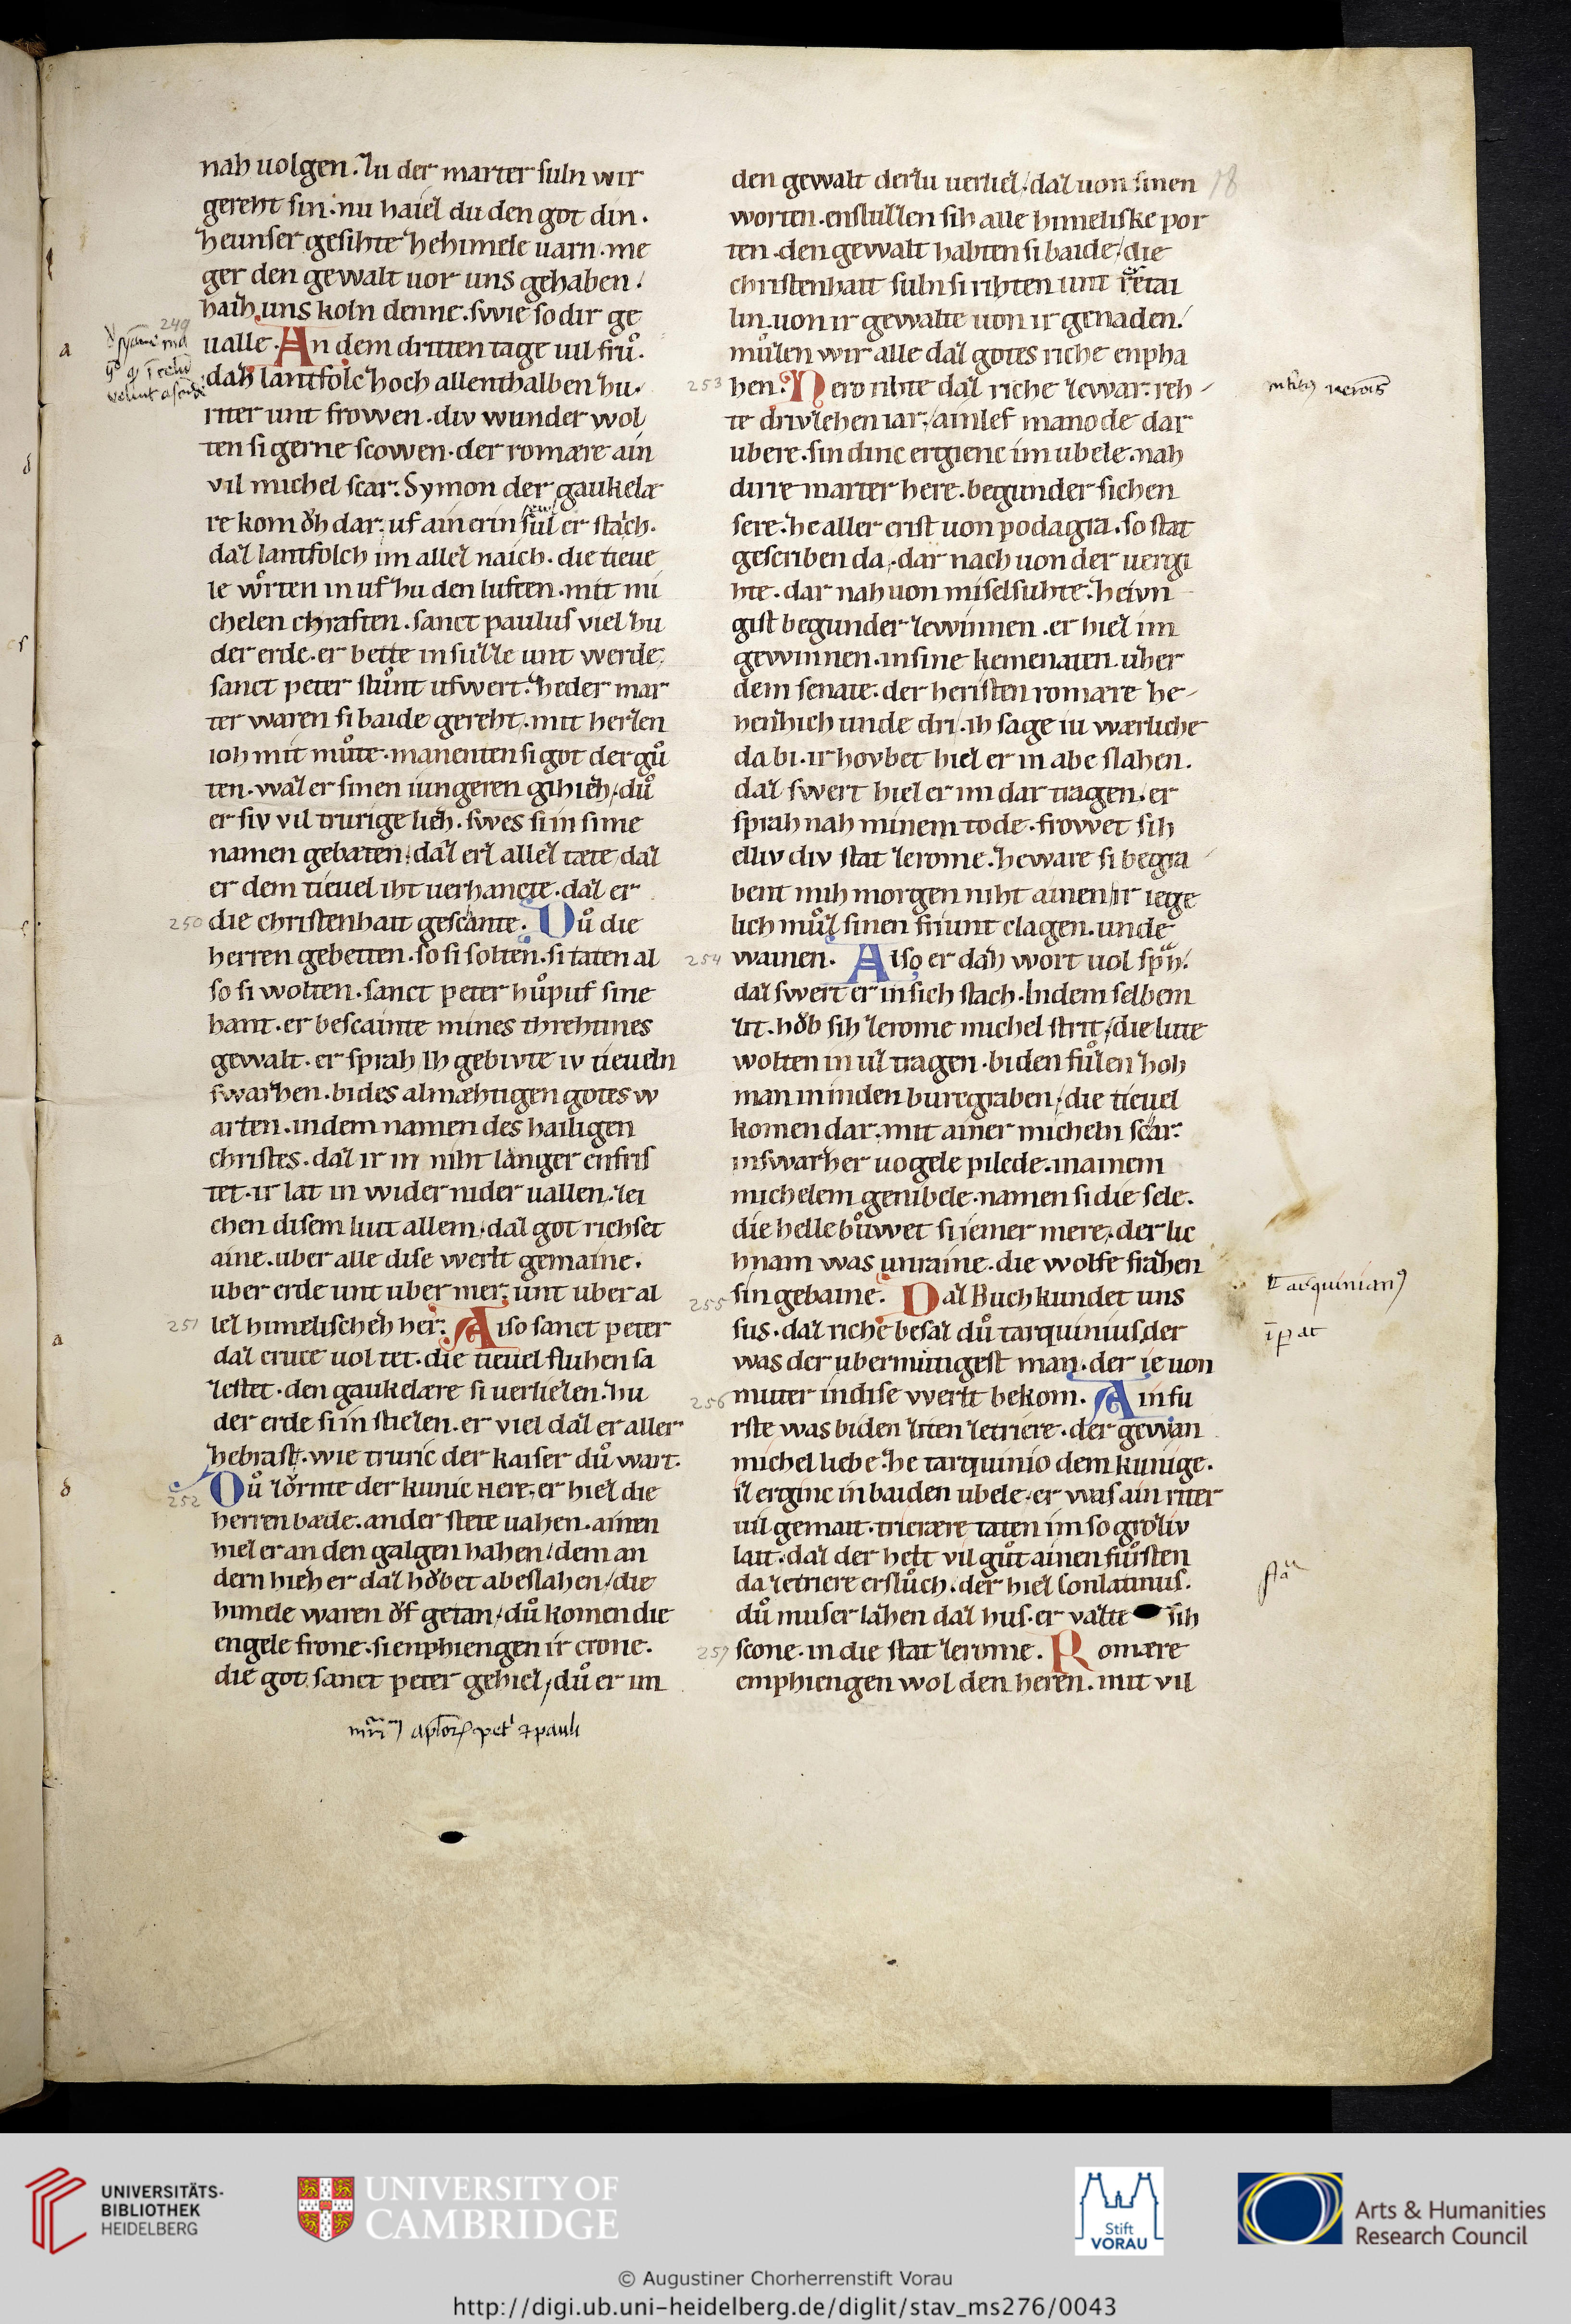 nah uolgen. zu der marter suln wir
gereht sin. nu haiel du den got din.
ze unser gesihte ze himele uarn. me
ger den gewalt uor uns gehaben.
haiz uns koln denne. swie so dir ge
ualle. An dem dritten tage uil frů.
daz lantfolc zoch allenthalben zu.
riter unt frowen. div wunder wol
ten si gerne scowen. der romære ain
vil michel scar. Symon der gaukelæ
re kom dar. uf ain erin sul er stach.
daz lantfolch im allez naich. die tieue
le in uf zu den luften. mit mi
chelen chraften. sanct paulus viel zu
der erde. er bette in sulle unt werde.
sanct peter stůnt ufwert. ze der mar
ter waren si baide gereht. mit herzen
ioh mit můte. manenten si got der gů
ten. waz er sinen iungeren gihiez. dů
er siv vil trurige liez. swes si in sime
namen gebæten. daz erz allez tæte. daz
er dem tieuel iht uerhancte. daz er
250 die christenhait gescante. Dů die
herren gebetten. so si solten. si taten al
so si wolten. sanct peter hůp uf sine
hant. er bescainte mines threhtines
gewalt. er sprah Ih gebivte iv tieueln
swarzen. bi des almæhtigen gotes w
arten. in dem namen des hailigen
christes. daz ir in niht langer enfris
tet. ir lat in wider nider uallen. zei
chen disem liut allem. daz got richset
aine. uber alle dise werlt gemaine.
uber erde unt uber mer. unt uber al
251 lez himelischez her. Also sanct peter
daz cruce uol tet. die tieuel fluhen sa
zestet. den gaukelære si uerliezen. zu
der erde si in stiezen. er viel daz er aller
zebrast. wie truric der kaiser dů wart.
252 Dů zornte der kunic Nere. er hiez die
herren bæde. an der stete uahen. ainen
hiez er an den galgen hahen. dem an
dern hiez er daz hŏbet abeslahen. die
himele waren ŏf getan. dů komen die
engele frone. si enphiengen ir crone.
die got sanct peter gehiez, dů er im
aplorum petri et pauli
den gewalt derzu uerliez. daz uon sinen 18
worten. ensluzzen sih alle himeliske por
ten. den gewalt habten si baide. die
christenhait suln si rihten unt
lin. uon ir gewalte uon ir genaden.
můzen wir alle daz gotes riche enpha
253 hen. Nero rihte daz riche zewar. reh
te drivzehen iar. ainlef manode dar
ubere. sin dinc ergienc im ubele. nah
dirre marter here. begunder sichen
sere. ze aller erist uon podagra. so stat
gescriben da. dar nach uon der uergi
hte. dar nah uon miselsuhte. ze ivn
gist begunder zewinnen. er hiez im
gewinnen. in sine kemenaten. uzzer
dem senate. der heristen romære ze
nenzich unde dri. ih sage iu wærliche
da bi. ir hovbet hiez er in abe slahen.
daz swert hiez er im dar tragen. er
sprah nah minem tode. frowet sih
elliv div stat zerome. ze ware si begra
bent mih morgen niht ainen. ir iege
lich můz sinen friunt clagen. unde
254 wainen. Also er daz wort uol
daz swert er in sich stach. In dem selbem
zit. hŏb sih zerome michel strit. die lute
wolten in uz tragen. bi den fůzen zoh
man in in den burcgraben. die tieuel
komen dar. mit ainer micheln scar.
in swarzer uogele pilede. in ainem
michelem genibele. namen si die sele.
die helle bůwet si iemer mere. der lic
hnam was unraine. die wolfe frazen
255 sin gebaine. Daz Buch kundet uns
sus. daz riche besaz dů tarquinius. der
was der ubermůtigest man. der ie uon
256 muter in dise werlt bekom. Ain fu
rste was bi den ziten zetriere. der gewan
michel liebe. ze tarquinio dem kunige.
iz erginc in baiden ubele. er was ain riter
uil gemait. trierære taten im so groziv
lait. daz der helt vil gůt ainen fůrsten
da zetriere erslůch. der hiez Conlatinus.
dů muser lazen daz hus. er valte sih
257 scone. in die stat zerome. Romære
emphiengen wol den heren. mit vil
249
Neronis
Tarquinianus
UNIVERSITÄTS-
BIBLIOTHEK
HEIDELBERG
UNIVERSITY OF
CAMBRIDGE
Stift
VORAU
Arts & Humanities
Research Council
© Augustiner Chorherrenstift Vorau
http://digi.ub.uni-heidelberg.de/diglit/stav_ms276/0043